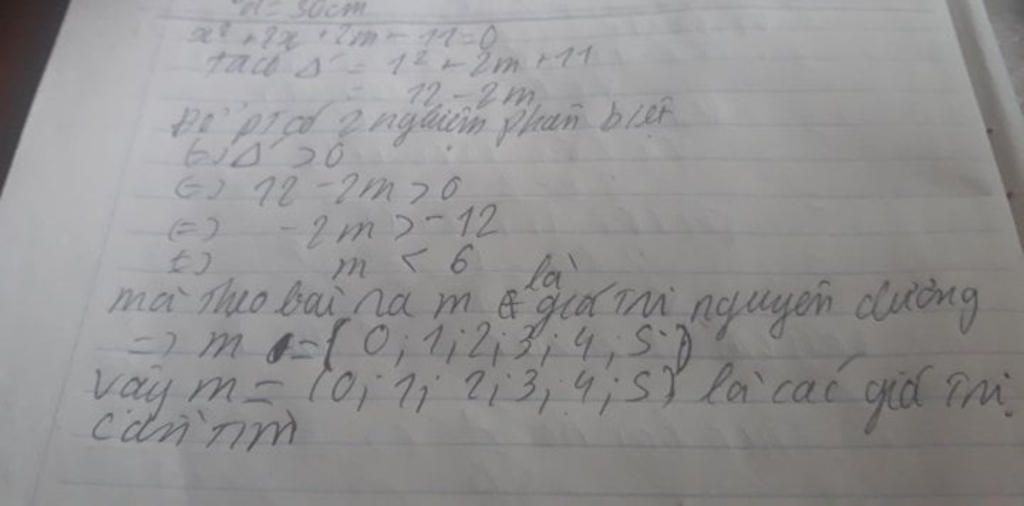 d = 30cm
x² + 2x + 2m - 11 = 0
ta có Δ' = 1² - 2m + 11
= 12 - 2m
Để pt có 2 nghiệm phân biệt
(=) Δ' > 0
(=) 12 - 2m > 0
(=) - 2m > - 12
(=) m < 6
mà theo bài ra m là giá trị nguyên dương
=> m = { 0; 1; 2; 3; 4; 5 }
Vậy m = {0; 1; 2; 3; 4; 5} là các giá trị
cần tìm